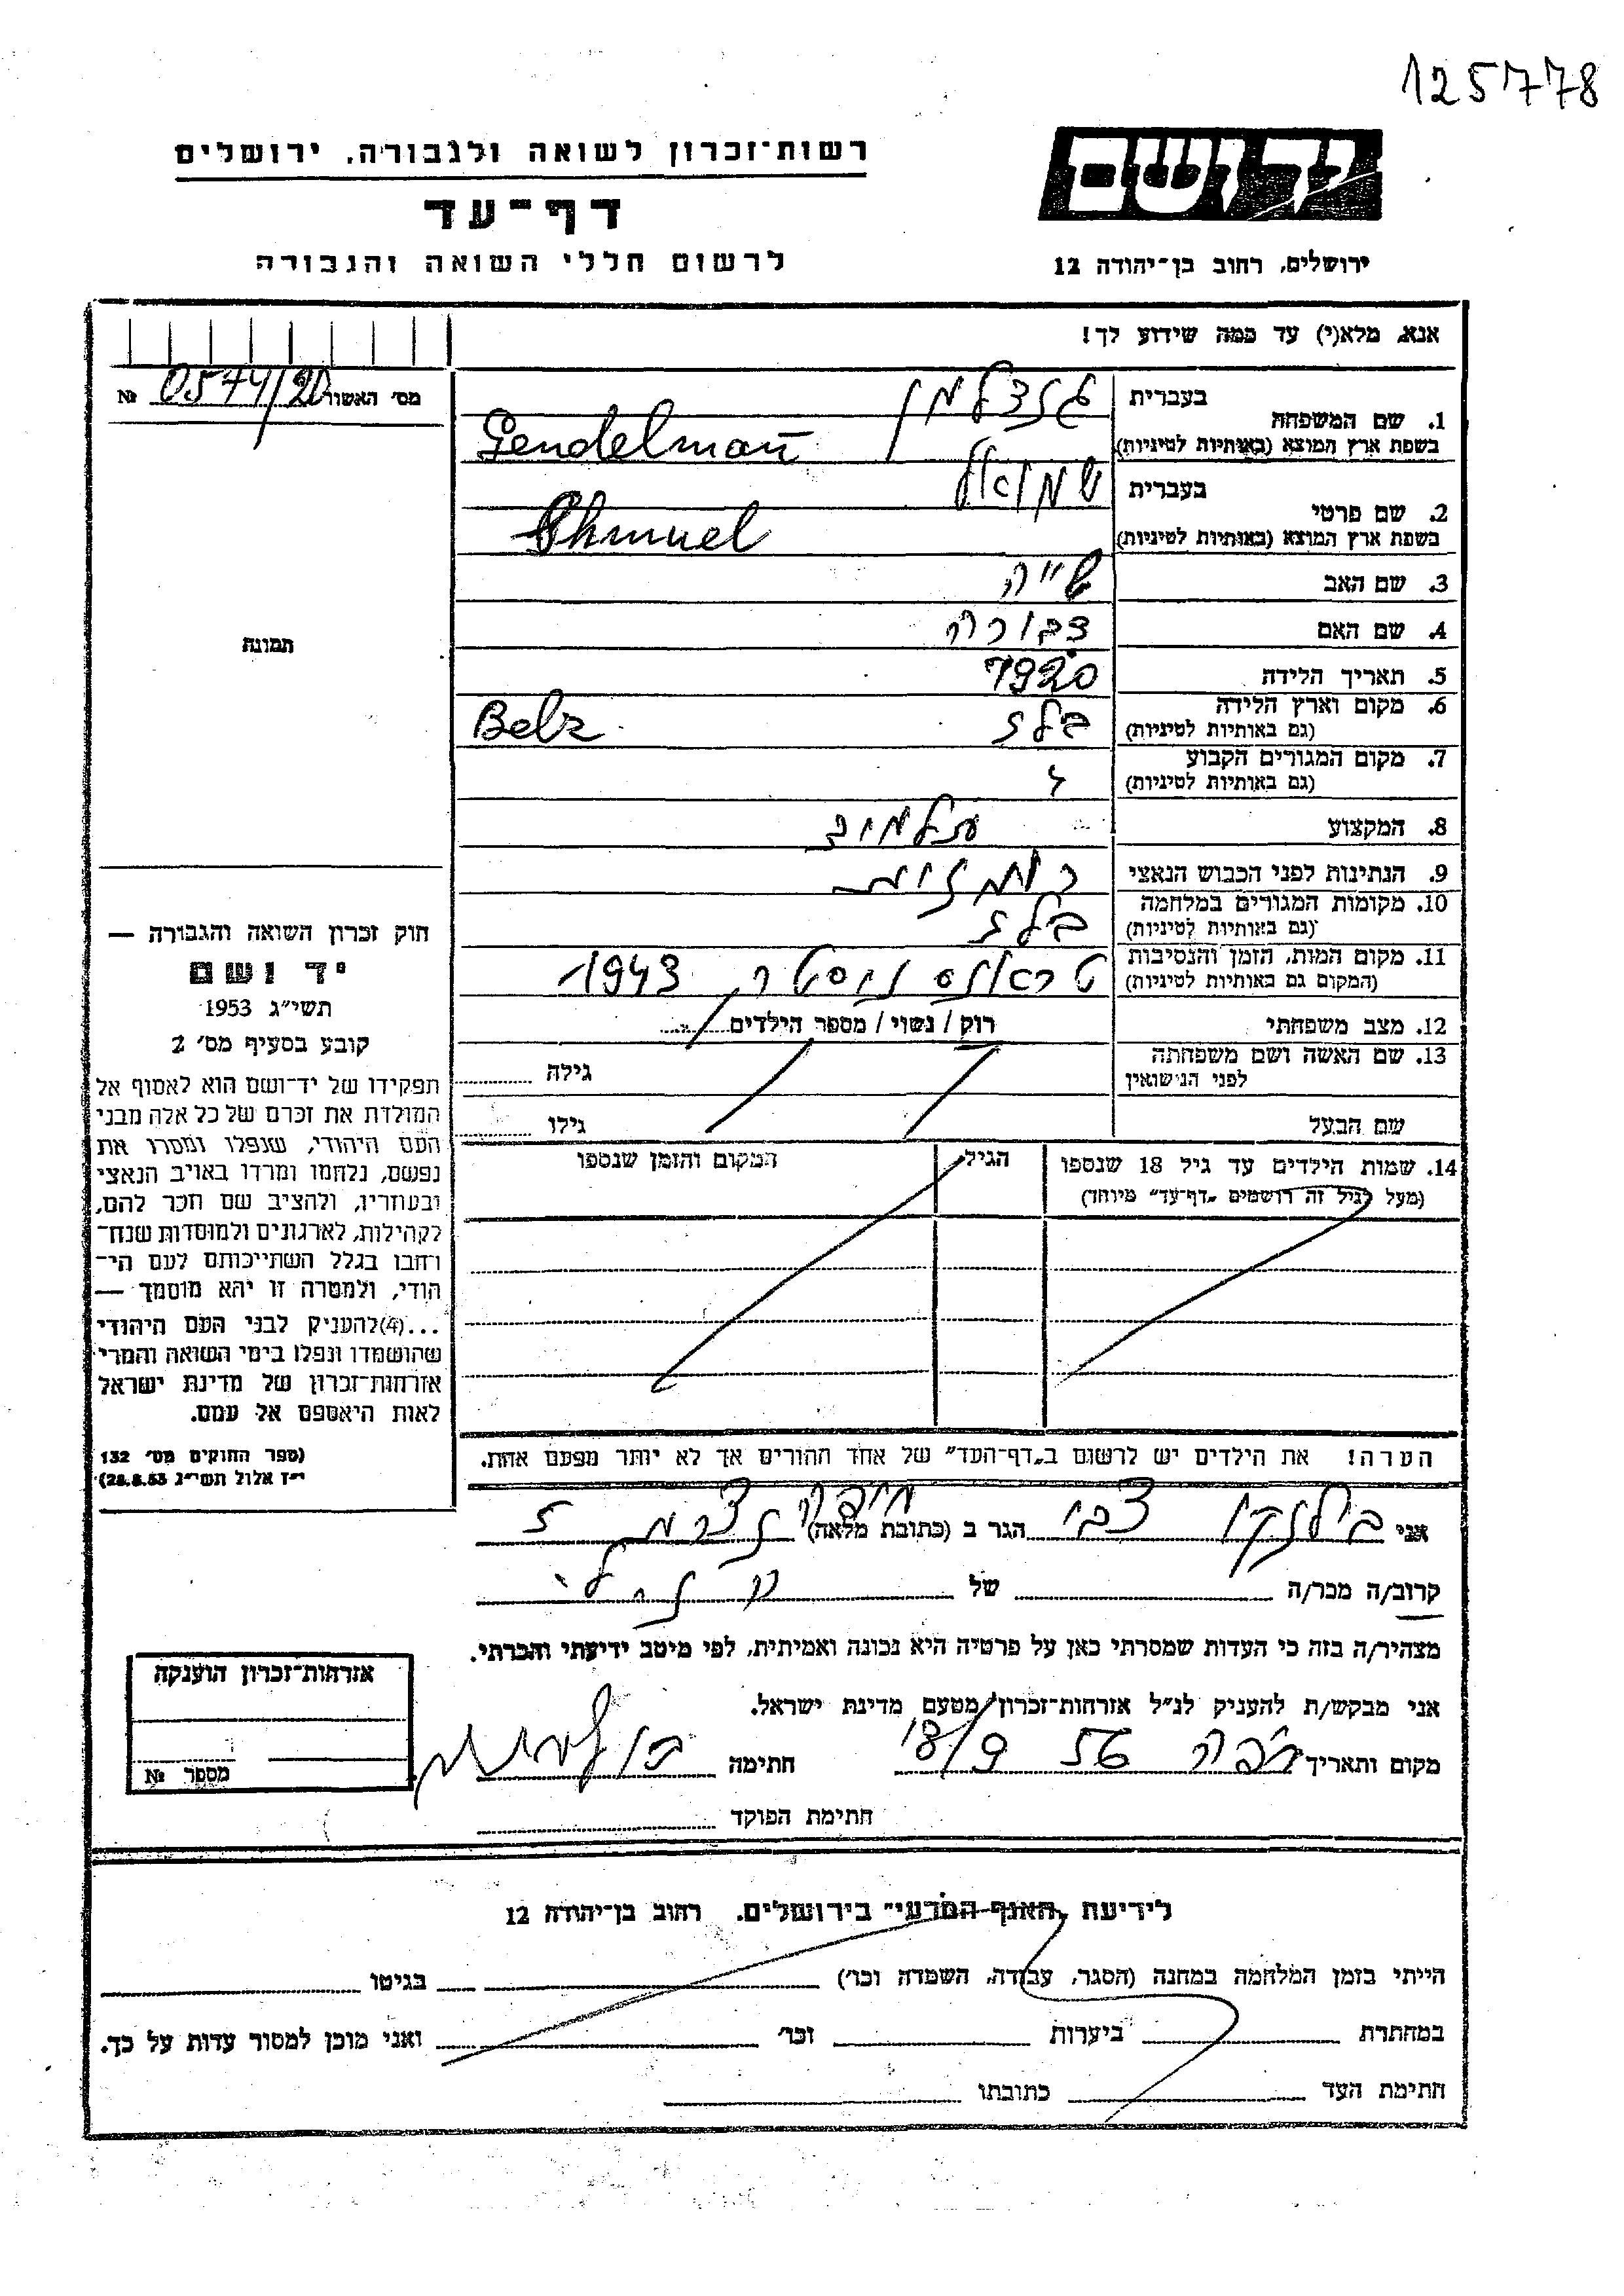 125778
רשות־זכרון לשואה ולגבורה, ירושלים
דף־עד
לרשום חללי השואה והגבורה
יד ושם
ירושלים, רחוב בן־יהודה 12
אנא, מלא(י) עד כמה שידוע לך!
מס' האשור 0574/20 №
1. שם המשפחה
בעברית גנדלמן
בשפת ארץ המוצא (באותיות לטיניות) Gendelman
2. שם פרטי
בעברית שמואל
בשפת ארץ המוצא (באותיות לטיניות) Shmuel
3. שם האב שייה
4. שם האם דבורה
5. תאריך הלידה 1920
6. מקום וארץ הלידה בלז Belz
(גם באותיות לטיניות)
7. מקום המגורים הקבוע
(גם באותיות לטיניות)
8. המקצוע
9. הנתינות לפני הכבוש הנאצי רומנית
10. מקומות המגורים במלחמה בלז
(גם באותיות לטיניות)
11. מקום המות, הזמן והנסיבות טראנסניסטר 1943
(המקום גם באותיות לטיניות)
12. מצב משפחתי רוק / נשוי / מספר הילדים
13. שם האשה ושם משפחתה
לפני הנישואין גילה
שם הבעל גילו
14. שמות הילדים עד גיל 18 שנספו הגיל המקום והזמן שנספו
(מעל לגיל זה רושמים „דף־עד" מיוחד)
הערה! את הילדים יש לרשום ב„דף־העד" של אחד ההורים אך לא יותר מפעם אחת.
תמונה
חוק זכרון השואה והגבורה —
יד ושם
תשי"ג 1953
קובע בסעיף מס' 2
תפקידו של יד־ושם הוא לאסוף אל
המולדת את זכרם של כל אלה מבני
העם היהודי, שנפלו ומסרו את
נפשם, נלחמו ומרדו באויב הנאצי
ובעוזריו, ולהציב שם וזכר להם,
לקהילות, לארגונים ולמוסדות שנח־
רחבו בגלל השתייכותם לעם הי־
הודי, ולמטרה זו יהא מוסמך —
...(4)להעניק לבני העם היהודי
שהושמדו ונפלו בימי השואה והמרי
אזרחות־זכרון של מדינת ישראל
לאות היאספם אל עמם.
(ספר החוקים מס' 132
י"ז אלול תשי"ג 28.8.53)
אני צבי הגר ב (כתובת מלאה) חיפה
קרוב/ה מכר/ה של
מצהיר/ה בזה כי העדות שמסרתי כאן על פרטיה היא נכונה ואמיתית, לפי מיטב ידיעתי והכרתי.
אני מבקש/ת להעניק לנ"ל אזרחות־זכרון מטעם מדינת ישראל.
מקום ותאריך חיפה 18/9 56 חתימה
חתימת הפוקד
אזרחות־זכרון הוענקה
מספר №
לידיעת „האגף המדעי" בירושלים, רחוב בן־יהודה 12
הייתי בזמן המלחמה במחנה (הסגר, עבודה, השמדה וכו') בגיטו
במחתרת ביערות וכו' ואני מוכן למסור עדות על כך.
חתימת העד כתובתו